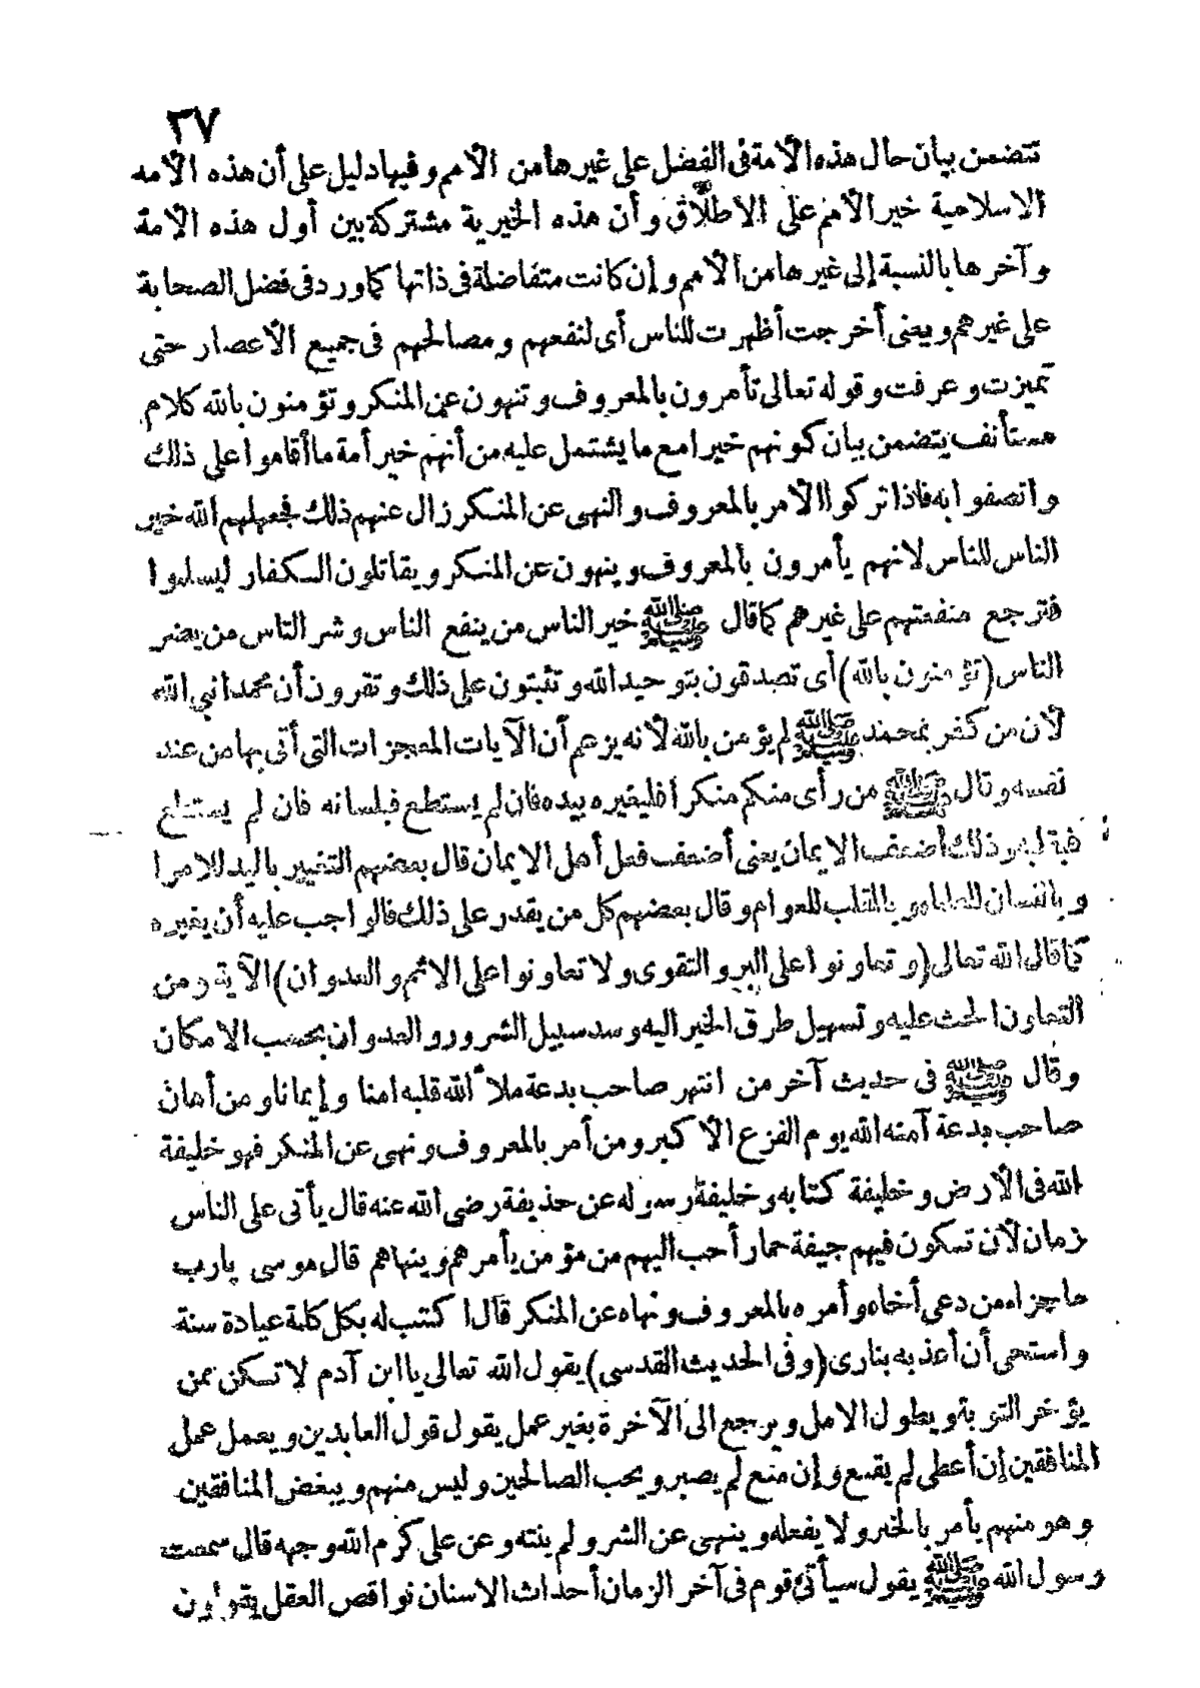 ٣٧
تتضمن بيان حال هذه الأمة فى الفضل على غيرها من الأمم وفيها دليل على أن هذه الأمة
الاسلامية خير الأمم على الاطلاق وأن هذه الخيرية مشتركة بين أول هذه الأمة
وآخرها بالنسبة إلى غيرها من الأمم وإن كانت متفاضلة فى ذاتها كما ورد فى فضل الصحابة
على غيرهم ويعنى أخرجت أظهرت للناس أى لنفعهم ومصالحهم فى جميع الأعصار حتى
تميزت وعرفت وقوله تعالى تأمرون بالمعروف وتنهون عن المنكر وتؤمنون بالله كلام
مستأنف يتضمن بيان كونهم خيرا مع ما يشتمل عليه من أنهم خير أمة ما أقاموا على ذلك
واتصفوا به فاذا تركوا الأمر بالمعروف والنهى عن المنكر زال عنهم ذلك فجعلهم الله خير
الناس للناس لانهم يأمرون بالمعروف وينهون عن المنكر ويقاتلون الكفار ليسلموا
فترجع منفعتهم على غيرهم كما قال ﷺ خير الناس من ينفع الناس وشر الناس من يضر
الناس (تؤمنون بالله) أى تصدقون بتوحيد الله وتثبتون على ذلك وتقرون أن محمدا نبي الله
لأن من كفر بمحمد ﷺ لم يؤمن بالله لأنه يزعم أن الآيات المعجزات التى أتى بها من عند
نفسه وقال ﷺ من رأى منكم منكرا فليغيره بيده فان لم يستطع فبلسانه فان لم يستطع
فبقلبه وذلك أضعف الايمان يعنى أضعف فعل أهل الايمان قال بعضهم التغيير باليد للامرا
وباللسان للعلماء وبالقلب للعوام وقال بعضهم كل من يقدر على ذلك فالواجب عليه أن يغيره
كما قال الله تعالى (وتعاونوا على البر والتقوى ولا تعاونوا على الاثم والعدوان) الآية ومن
التعاون الحث عليه وتسهيل طرق الخير اليه وسد سبيل الشرور والعدوان بحسب الامكان
وقال ﷺ فى حديث آخر من انتهر صاحب بدعة ملأ الله قلبه امنا وإيمانا ومن أهان
صاحب بدعة آمنه الله يوم الفزع الأكبر ومن أمر بالمعروف ونهى عن المنكر فهو خليفة
الله فى الأرض وخليفة كتابه وخليفة رسوله عن حذيفة رضى الله عنه قال يأتى على الناس
زمان لأن تكون فيهم جيفة حمار أحب اليهم من مؤمن يأمرهم وينهاهم قال موسى يارب
ما جزاء من دعى أخاه وأمره بالمعروف ونهاه عن المنكر قال اكتب له بكل كلمة عبادة سنة
واستحى أن أعذبه بنارى (وفى الحديث القدسى) يقول الله تعالى يا ابن آدم لا تكن ممن
يؤخر التوبة ويطول الامل ويرجع الى الآخرة بغير عمل يقول قول العابدين ويعمل عمل
المنافقين إن أعطى لم يقنع وإن منع لم يصبر ويحب الصالحين وليس منهم ويبغض المنافقين
وهو منهم يأمر بالخير ولا يفعله وينهى عن الشر ولم ينته وعن على كرم الله وجهه قال سمعت
رسول الله ﷺ يقول سيأتى قوم فى آخر الزمان أحداث الاسنان نواقص العقل يقولون